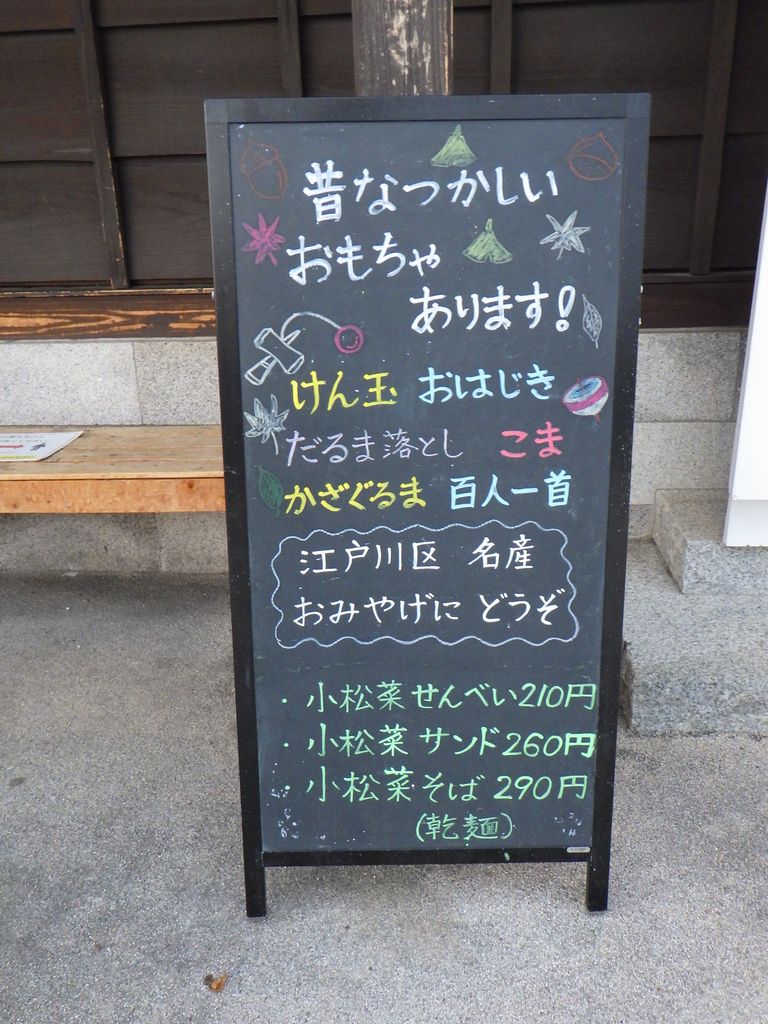 昔なつかしい
おもちゃ
あります!
けん玉 おはじき
だるま落とし こま
かざぐるま 百人一首
江戸川区 名産
おみやげに どうぞ
・小松菜せんべい210円
・小松菜サンド260円
・小松菜そば290円
(乾麺)